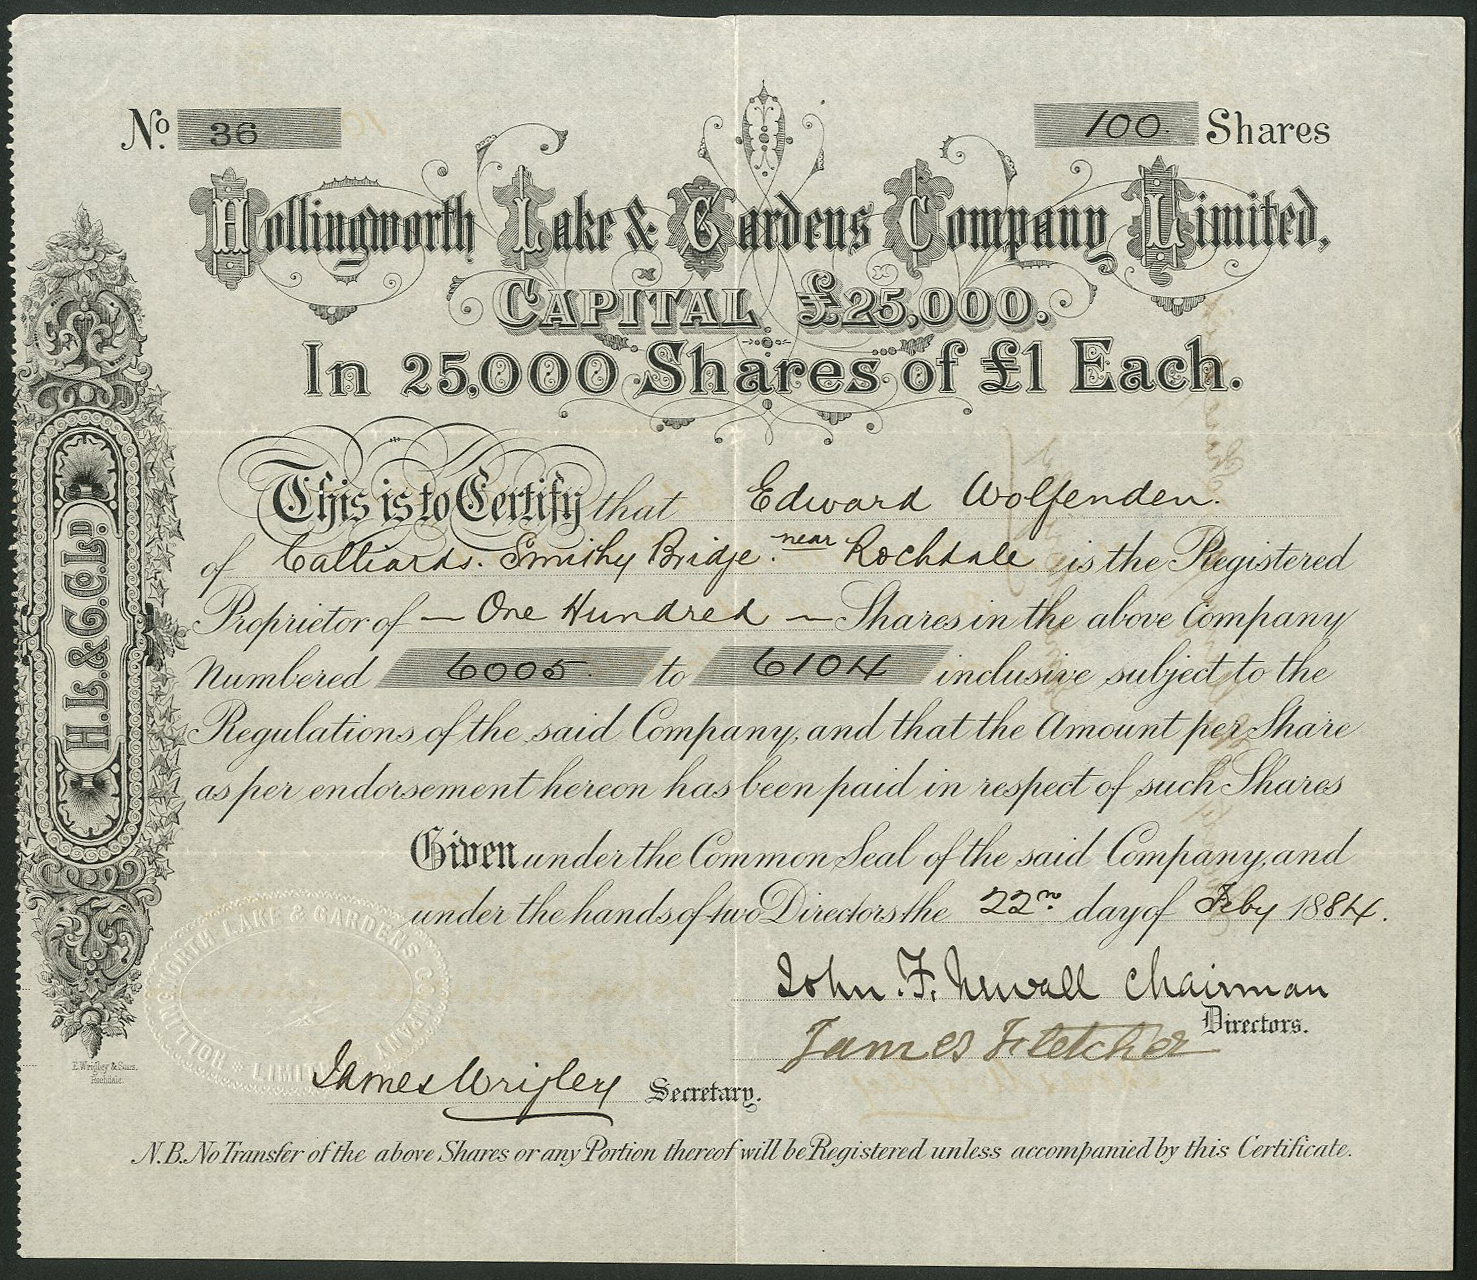 No. 36
100. Shares
Hollingworth Lake & Gardens Company Limited,
CAPITAL £25,000.
In 25,000 Shares of £1 Each.
This is to Certify that Edward Wolfenden.
of Calliards. Smithy Bridge. near Rochdale is the Registered
Proprietor of — One Hundred — Shares in the above Company
Numbered 6005 to 6104 inclusive subject to the
Regulations of the said Company, and that the Amount per Share
as per endorsement hereon has been paid in respect of such Shares
Given under the Common Seal of the said Company, and
under the hands of two Directors the 22n day of Feby 1884.
John. F. Newall Chairman
James Fletcher Directors.
James Wrigley Secretary.
N.B. No Transfer of the above Shares or any Portion thereof will be Registered unless accompanied by this Certificate.
H.L. & G. Co. LD.
E. Wrigley & Sons,
Rochdale.
HOLLINGWORTH LAKE & GARDENS COMPANY LIMITED